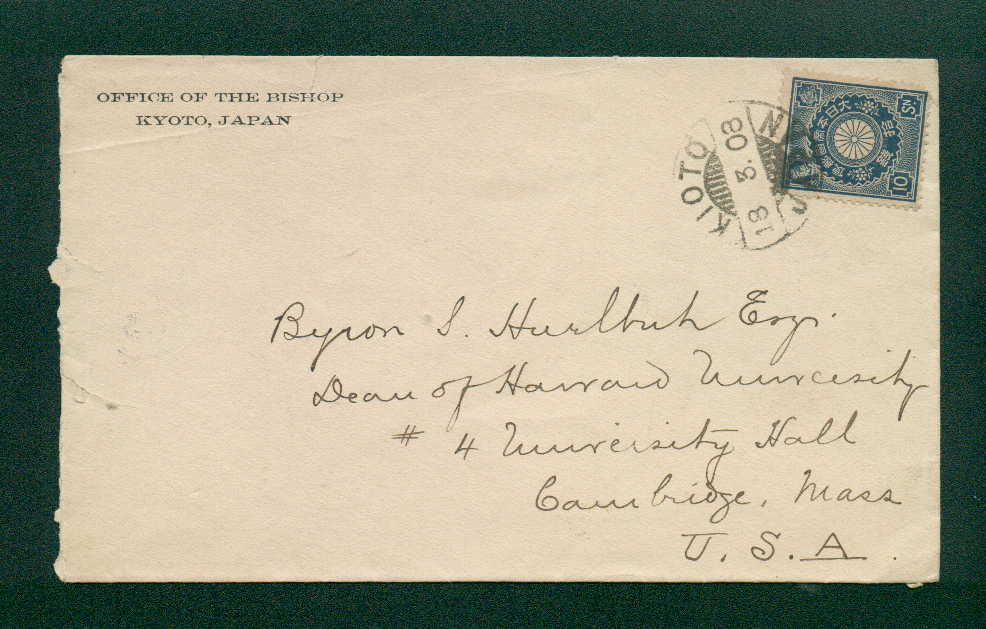 OFFICE OF THE BISHOP
KYOTO, JAPAN
KIOTO
18 3. 08
JAPAN
大日本帝國郵便
拾錢
10 Sn
Byron S. Hurlbut Esq.
Dean of Harvard University
# 4 University Hall
Cambridge, Mass
U. S. A.